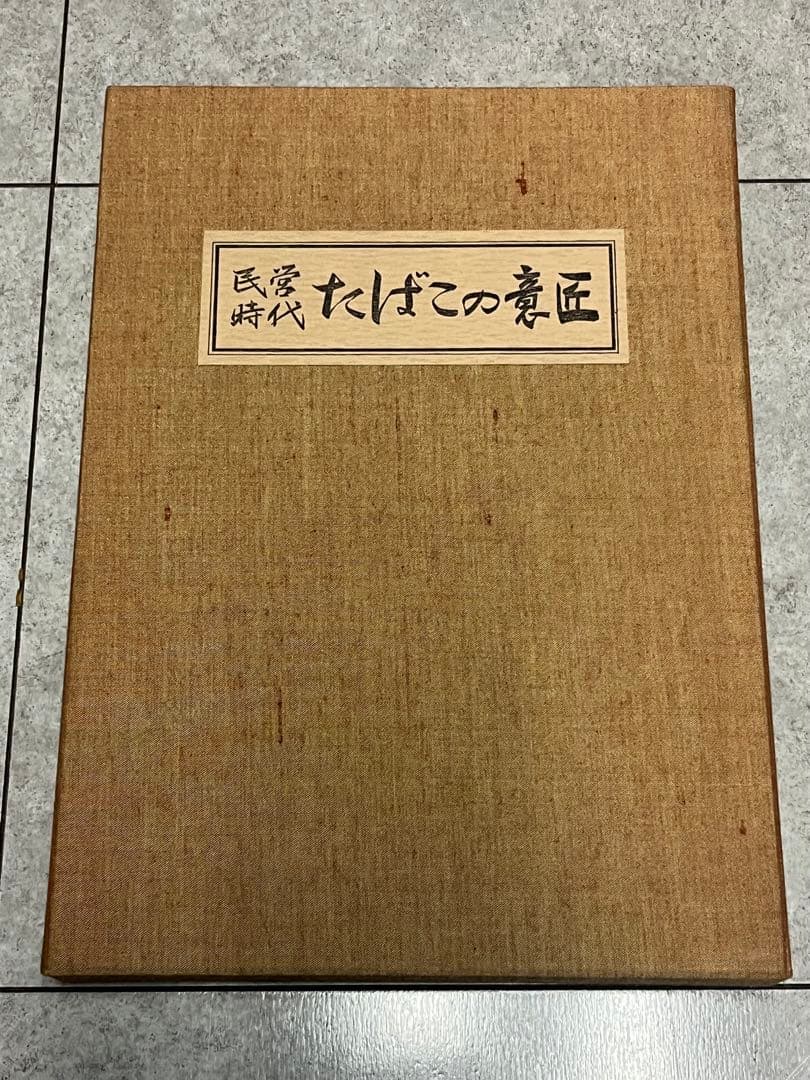 民営時代 たばこの意匠